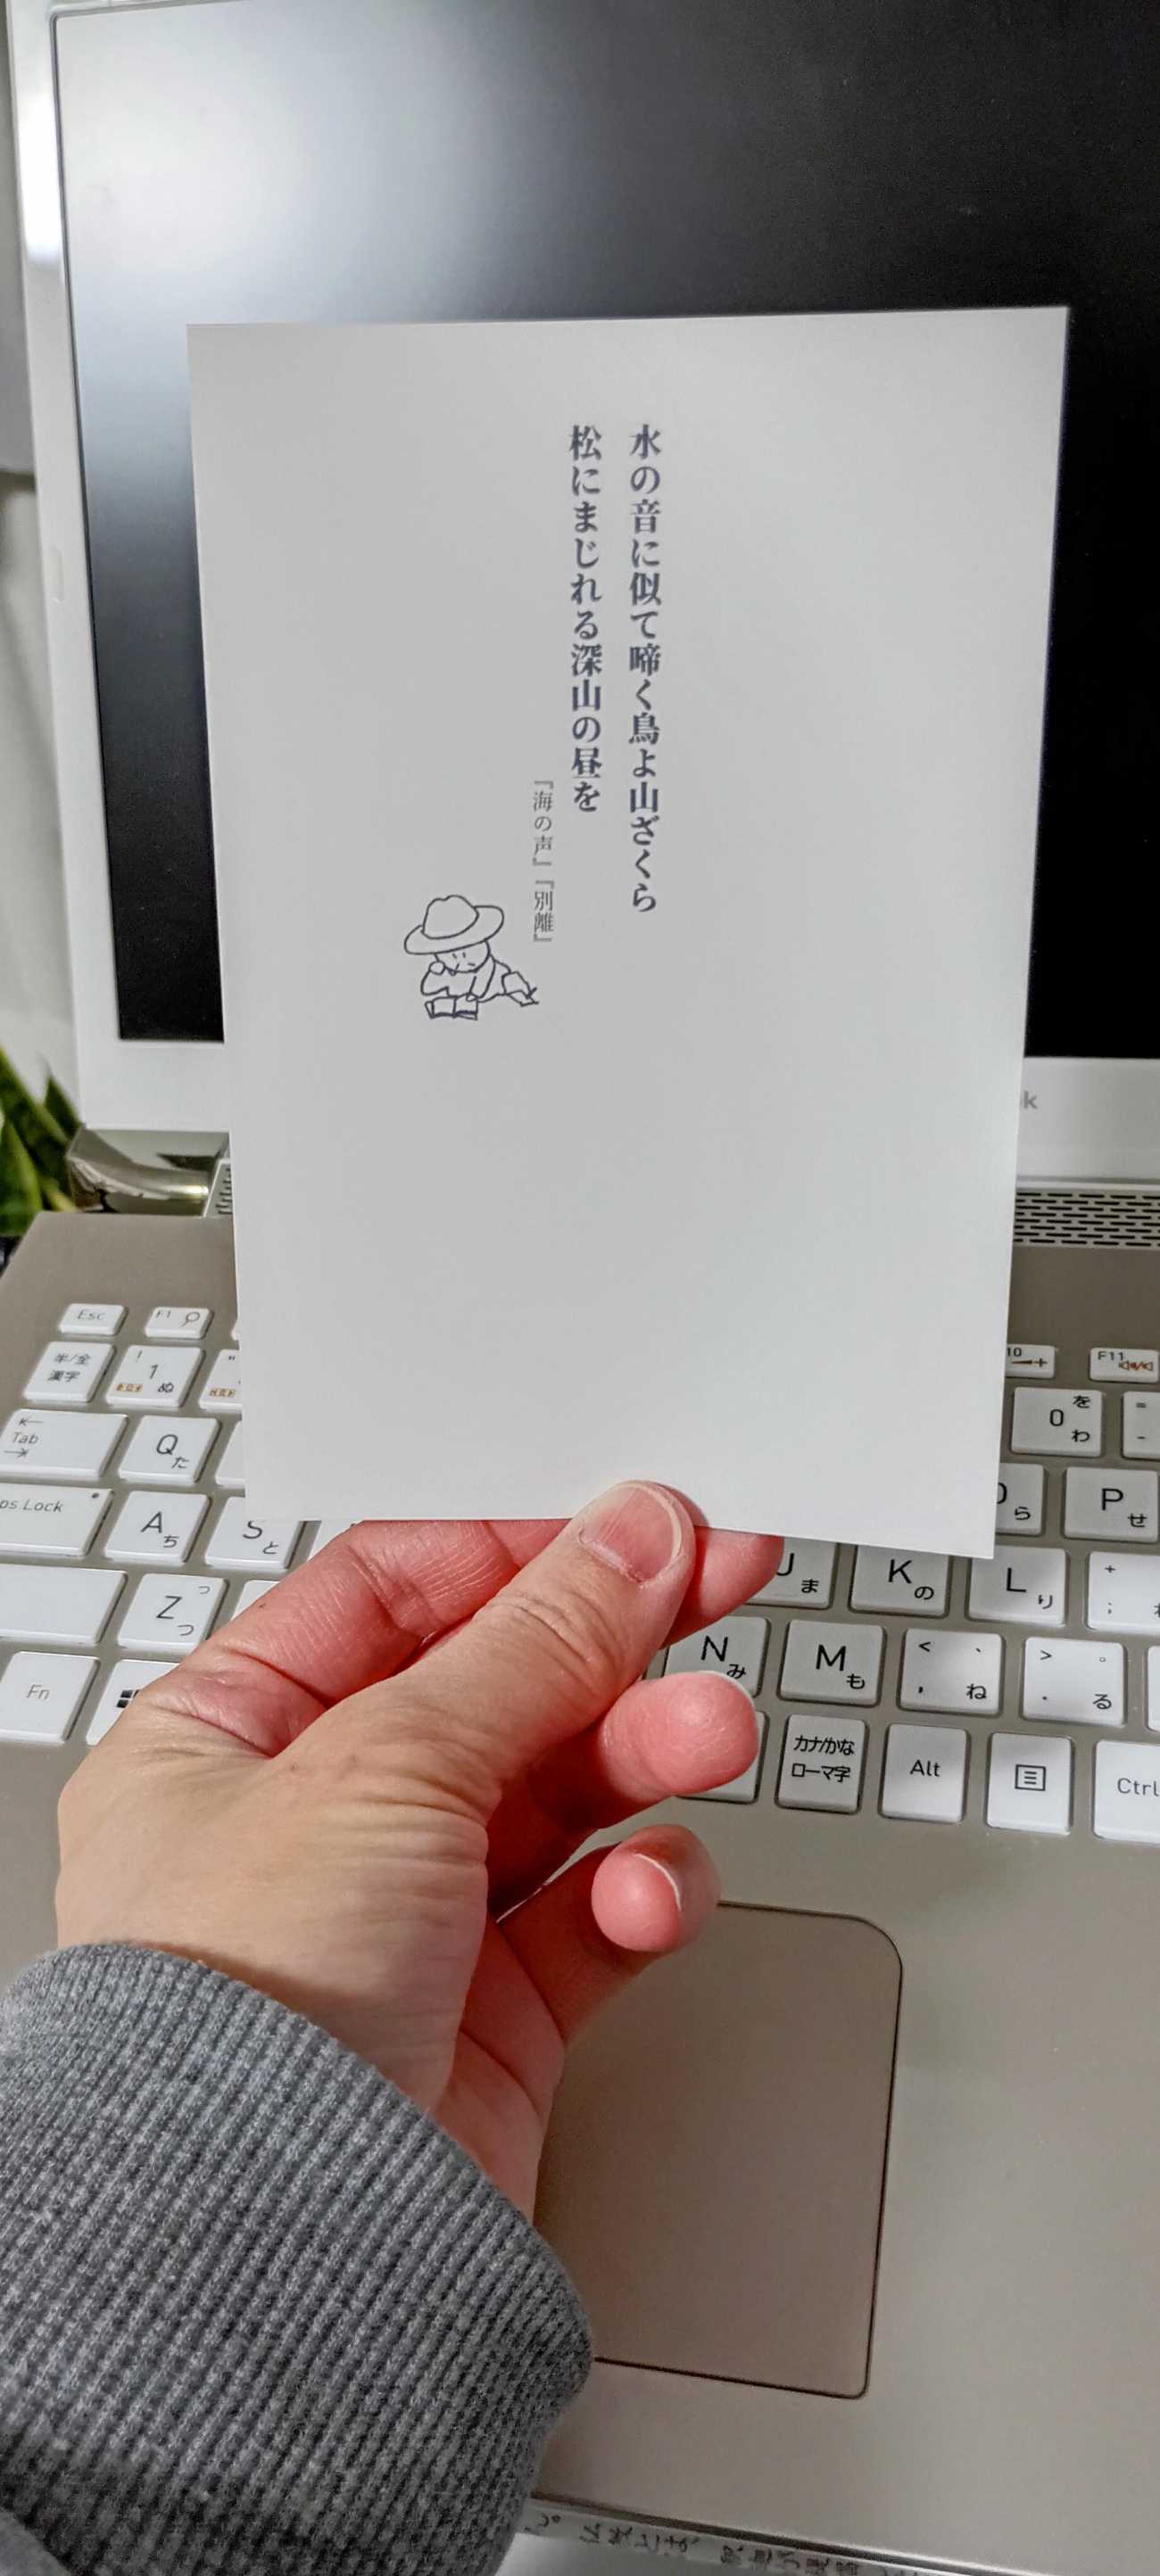 水の音に似て啼く鳥よ山ざくら
松にまじれる深山の昼を
『海の声』『別離』
k
Esc
F1
10
F11
半/全
漢字
! 1 ぬ
"
0 を わ
=
-
Tab
Q た
ら
P せ
ps Lock
A ち
S と
J ま
K の
L り
+
;
Z っ つ
N み
M も
< 、 , ね
> 。 . る
Fn
カナ/かな
ローマ字
Alt
Ctrl